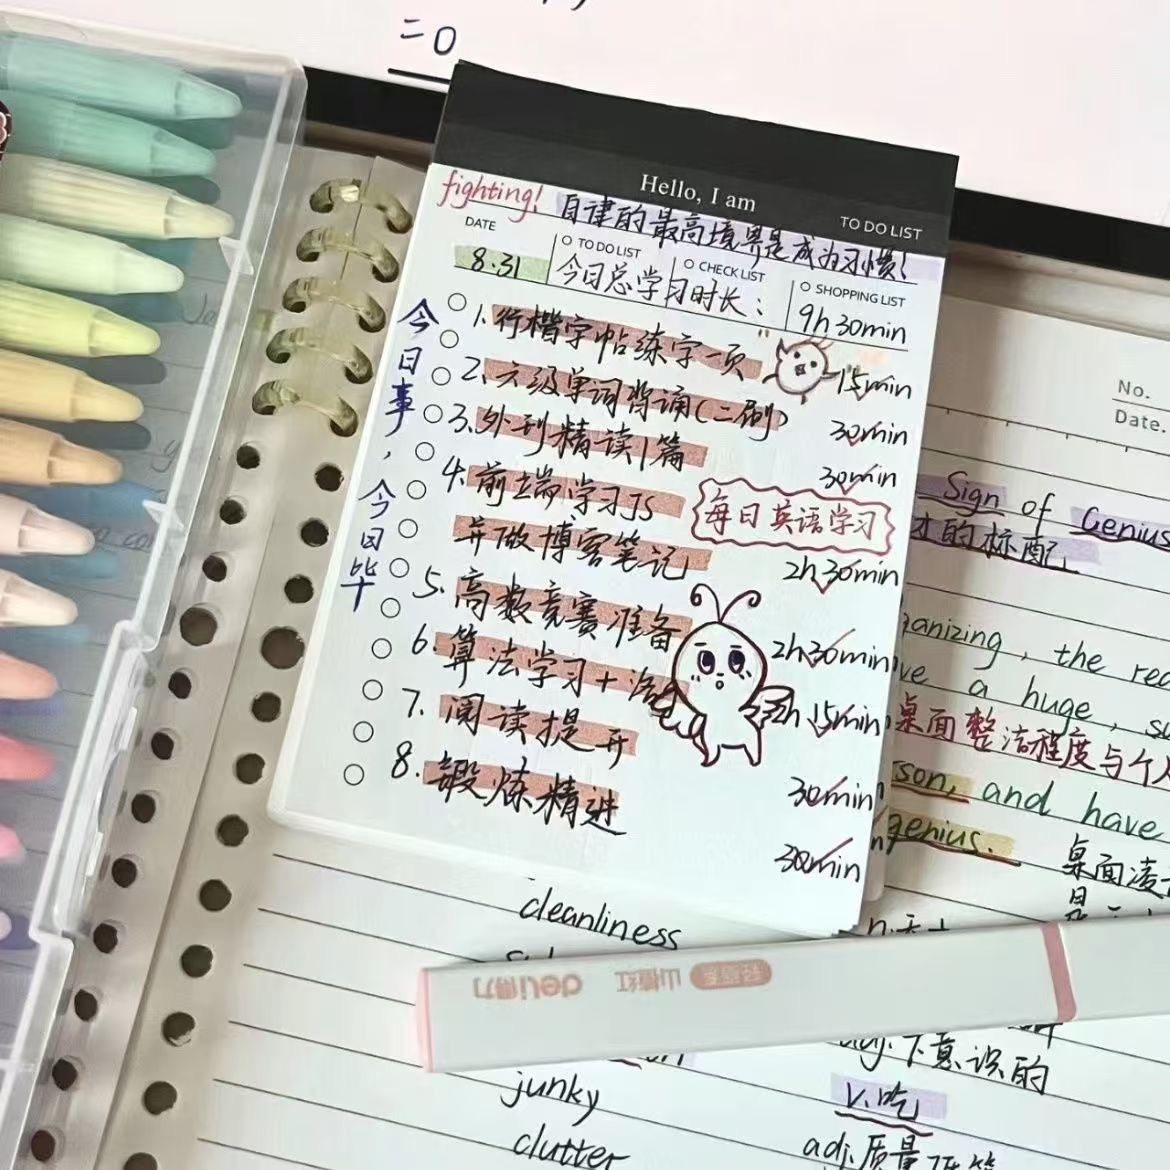 =0
Hello, I am
TO DO LIST
fighting! 自律的最高境界是成为习惯!
DATE
TO DO LIST
CHECK LIST
SHOPPING LIST
8.31
今日总学习时长:
9h30min
今日事,今日毕
1.行楷字帖练字一页 15min
2.六级单词背诵(二刷) 30min
3.外刊精读1篇 30min
每日英语学习
4.前端学习JS
并做博客笔记 2h30min
5.高数竞赛准备 2h30min
6.算法学习+ 2h15min
7.阅读提升 30min
8.锻炼精进 30min
No.
Date.
Sign of Genius
才的标配
anizing, the
ve a huge,
桌面整洁程度与个人
son, and have
genius.
桌面凌
cleanliness
deli得力
山楂红
junky
下意识的
v.吃
clutter
adj.质量